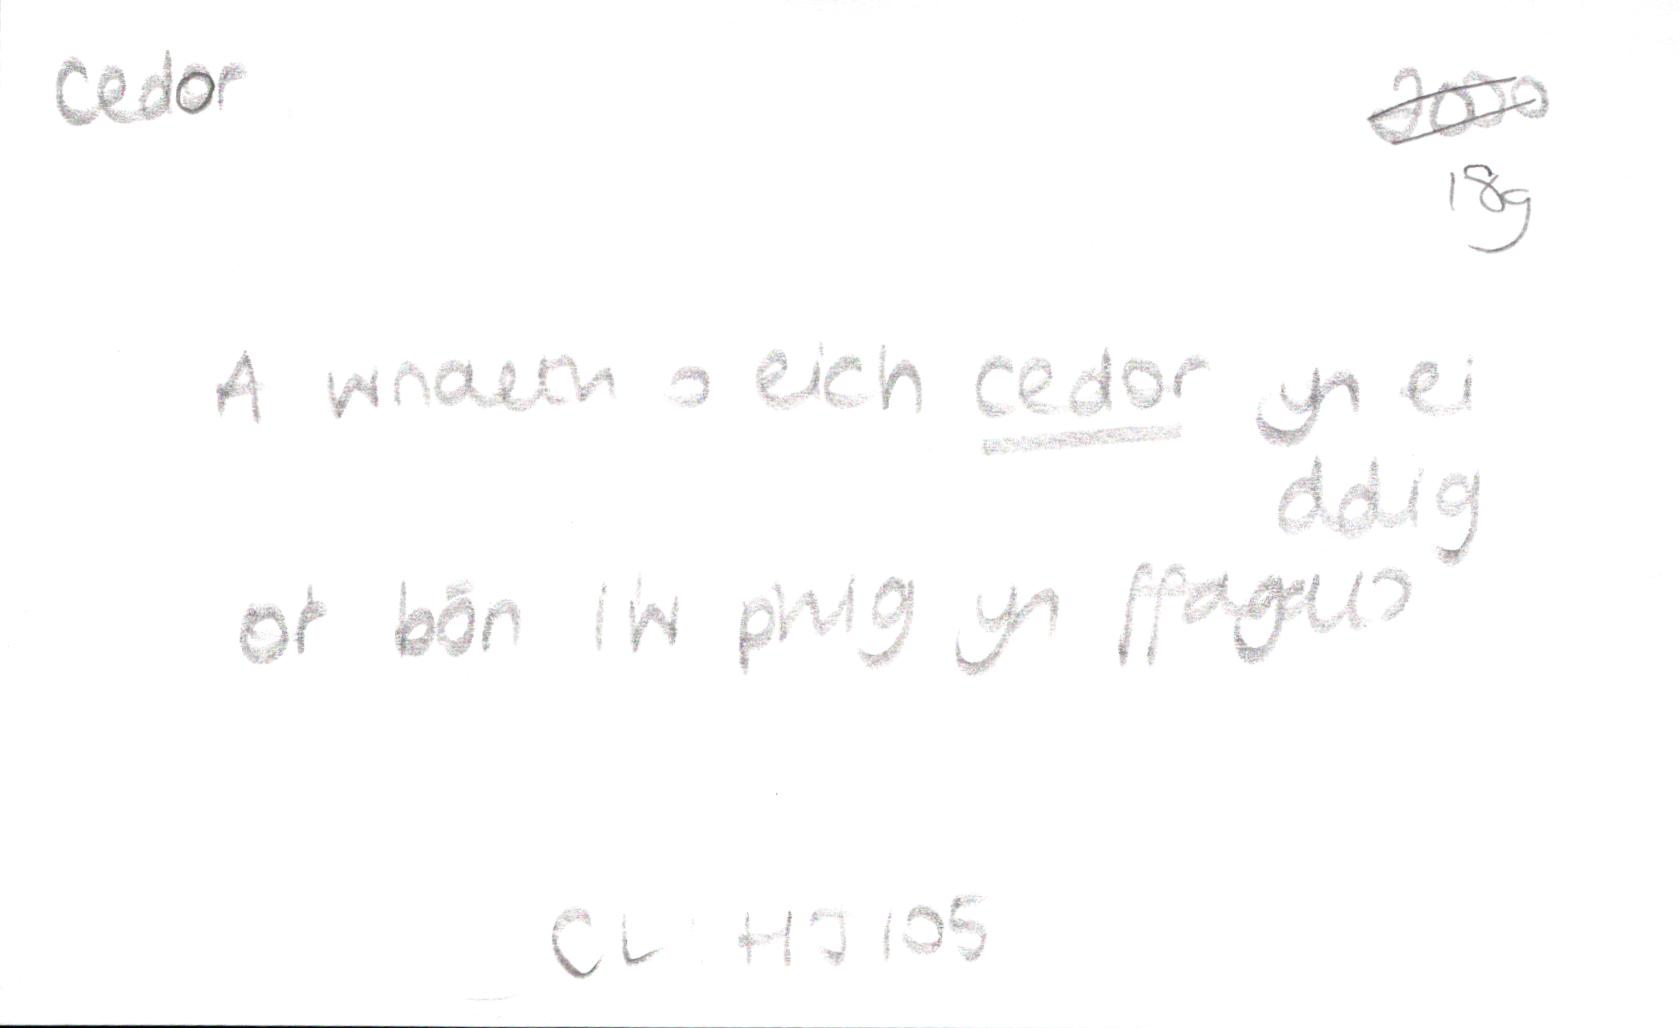 cedor
2000
18g
A wnaeth o eich cedor yn ei
ddig
or bôn iw phig yn
CL: HJ 105